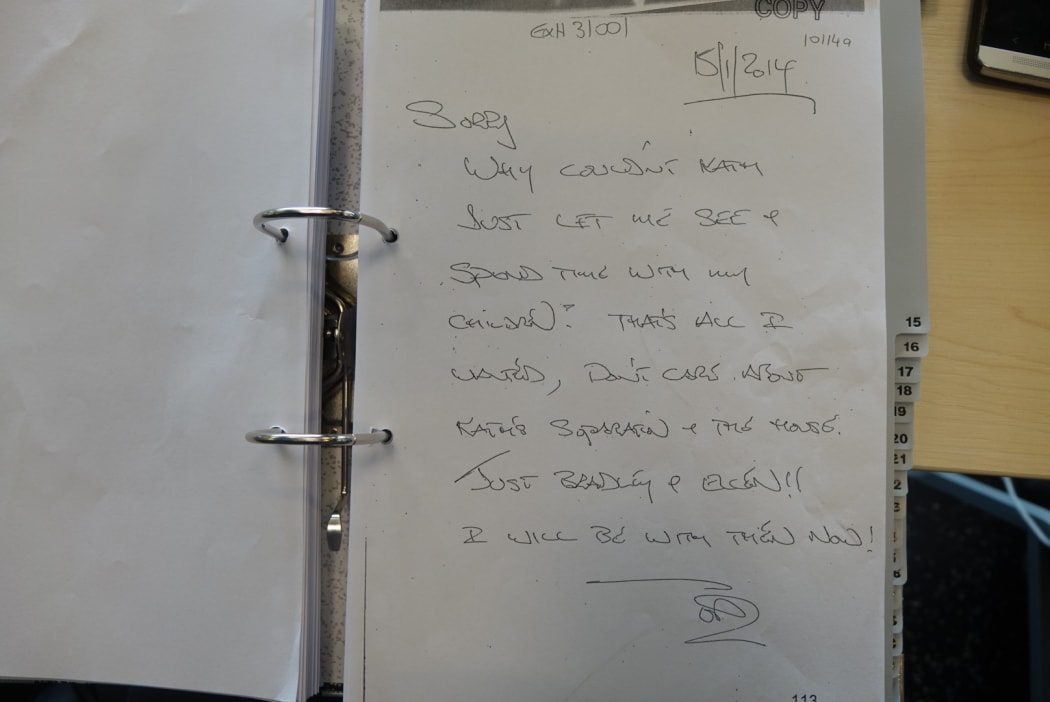 COPY
EXH 31001
101149
15/1/2014
SORRY
WHY COULDN'T KATH
JUST LET ME SEE &
SPEND TIME WITH MY
CHILDREN? THAT'S ALL I
WANTED, DON'T CARE ABOUT
KATH'S SEPARATION & THE HOUSE.
JUST BRADLEY & ELLEN!!
I WILL BE WITH THEM NOW!
113
15
16
17
18
19
20
21